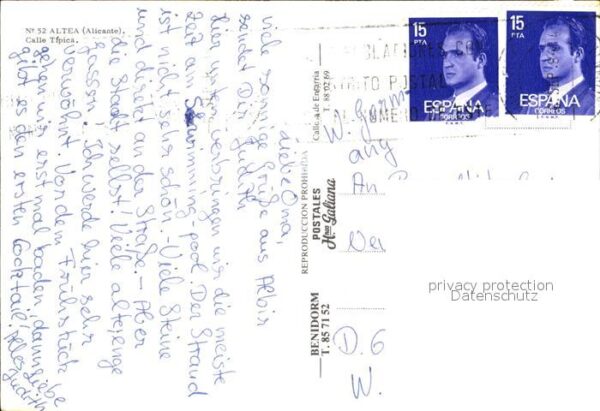 Nº 52 ALTEA (Alicante).
Calle Típica.
Liebe Oma,
viele sonnige Grüße aus Albir
sendet Dir Judith
Hier unten verbringen wir die meiste
Zeit am Swimming-pool. Der Strand
ist nicht sehr schön. - Viele Steine
und direkt an der Straße. - Aber
die Stadt selbst! Viele alte, enge
Gassen. Ich werde hier sehr
verwöhnt. Vor dem Frühstück
gehen wir erst mal baden, dann
gibt es den ersten Cocktail. Alles Liebe
Judith
Calle de
T. 88 02 69
REPRODUCCION PROHIBIDA
POSTALES
Hnos Galiana
BENIDORM
T. 85 71 52
15
PTA
ESPAÑA
CORREOS
F.N.M.T.
15
PTA
ESPAÑA
CORREOS
F.N.M.T.
POSTAL
W. Germ
any
An
D. 6
W.
privacy protection
Datenschutz